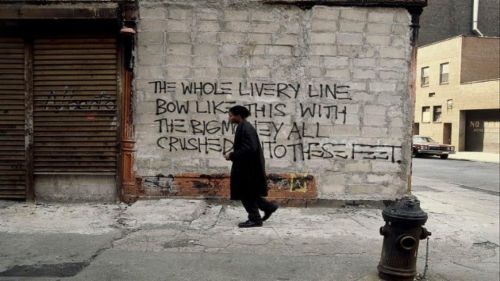 THE WHOLE LIVERY LINE
BOW LIKE THIS WITH
THE BIG MONEY ALL
CRUSHED INTO THESE FEET.
NO